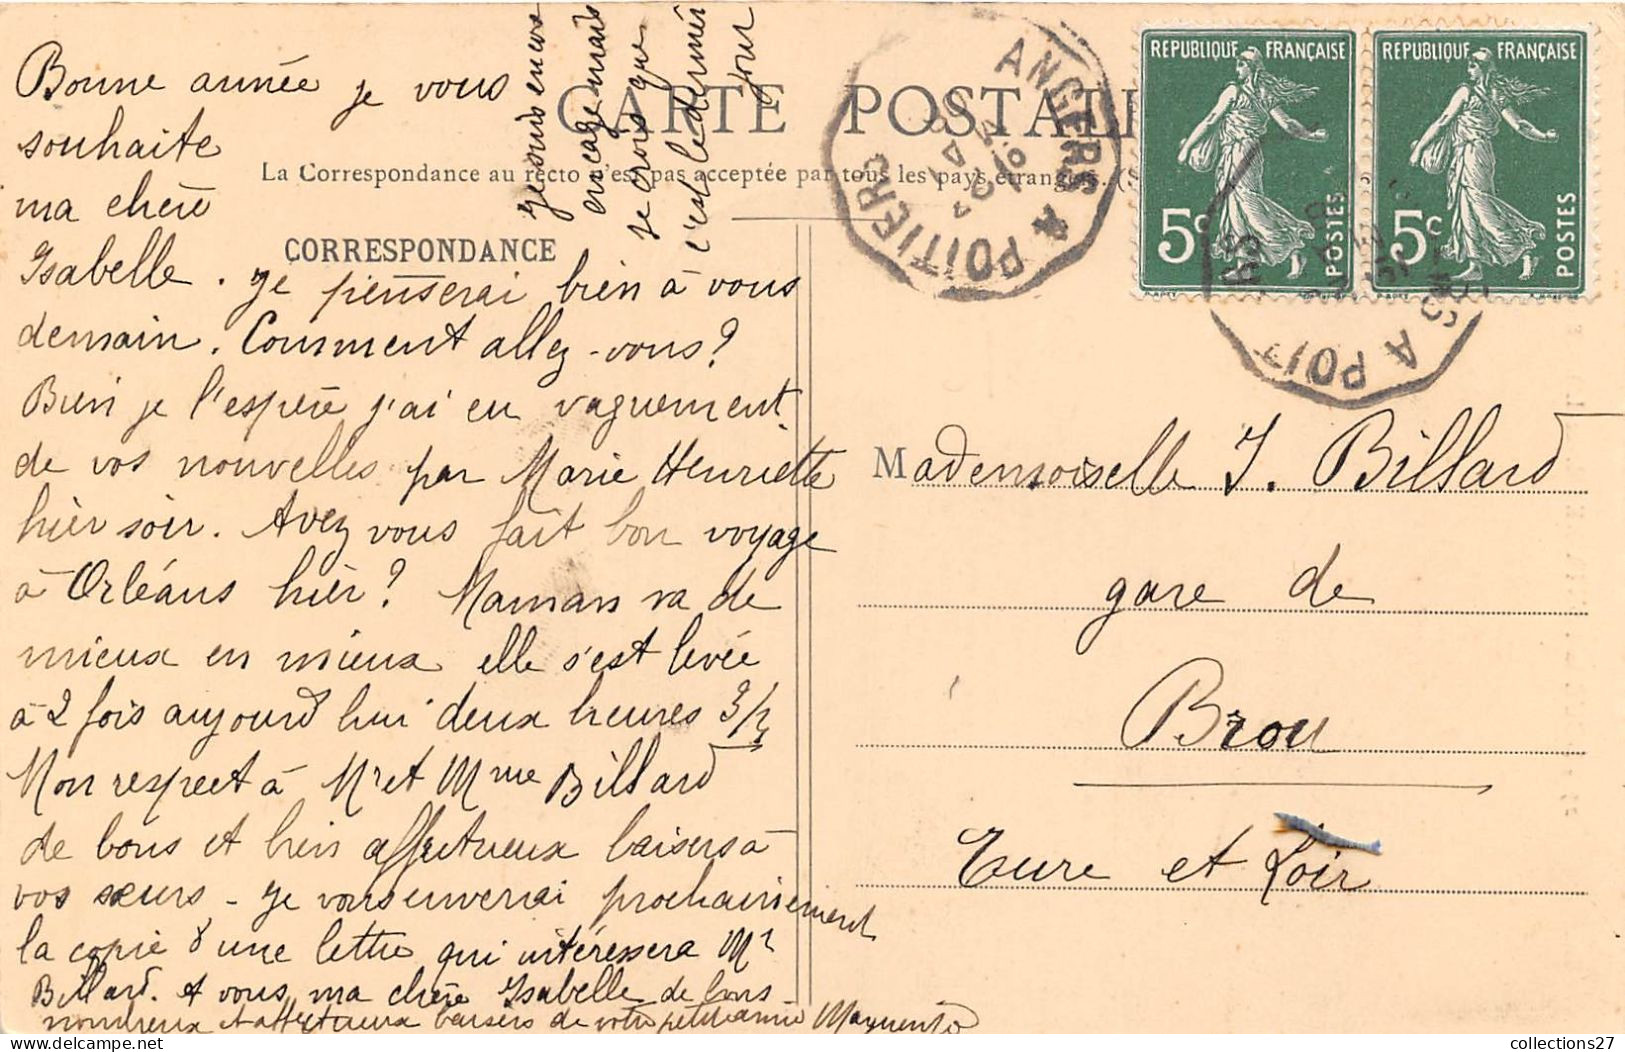 je suis encore
en cage mais
je crois que
c'est le dernier
jour
CARTE POSTALE
La Correspondance au recto n'est pas acceptée par tous les pays étrangers. (S
CORRESPONDANCE
Bonne année je vous
souhaite
ma chère
Isabelle. Je penserai bien à vous
demain. Comment allez-vous?
Bien je l'espère j'ai eu vaguement
de vos nouvelles par Marie Henriette
hier soir. Avez vous fait bon voyage
à Orléans hier? Maman va de
mieux en mieux elle s'est levée
à 2 fois aujourd'hui deux heures 3/4
Mon respect à Mr et Mme Billard
de bons et bien affectueux baisers à
vos sœurs - Je vous enverrai prochainement
la copie d'une lettre qui intéressera Mr
Billard. A vous ma chère Isabelle de bons
nombreux et affectueux baisers de votre petite amie
ANGERS A POITIERS
REPUBLIQUE FRANÇAISE
5c POSTES
REPUBLIQUE FRANÇAISE
5c POSTES
RS A POIT
Mademoiselle I. Billard
gare de
Brou
Eure et Loir
collections27